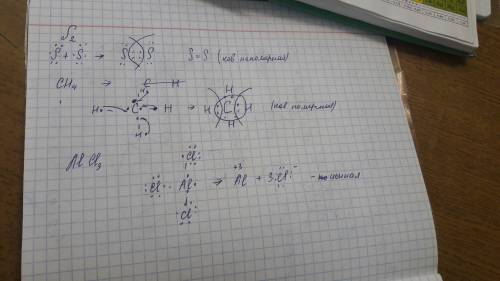 S₂
:S̈ + ·S̈: → :S̈ :: S̈: S=S (ков неполярная)
CH₄ → C — H
H
H· → ·C· ← ·H → H :C: H (ков полярная)
H H
AlCl₃ :C̈l:
:C̈l· ·Al· → Al⁺³ + 3:C̈l:⁻ - ионная
:Cl: